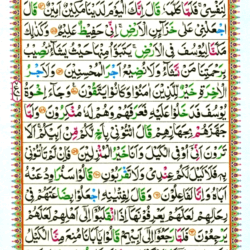 لِنَفْسِيْ فَلَمَّا كَلَّمَهٗ قَالَ اِنَّكَ الْيَوْمَ لَدَيْنَا مَكِيْنٌ اَمِيْنٌ قَالَ
اجْعَلْنِيْ عَلٰى خَزَآئِنِ الْاَرْضِ اِنِّيْ حَفِيْظٌ عَلِيْمٌ وَكَذٰلِكَ
مَكَّنَّا لِيُوْسُفَ فِي الْاَرْضِ يَتَبَوَّاُ مِنْهَا حَيْثُ يَشَآءُ نُصِيْبُ
بِرَحْمَتِنَا مَنْ نَّشَآءُ وَلَا نُضِيْعُ اَجْرَ الْمُحْسِنِيْنَ وَلَاَجْرُ
الْاٰخِرَةِ خَيْرٌ لِّلَّذِيْنَ اٰمَنُوْا وَكَانُوْا يَتَّقُوْنَ وَجَآءَ اِخْوَةُ
يُوْسُفَ فَدَخَلُوْا عَلَيْهِ فَعَرَفَهُمْ وَهُمْ لَهٗ مُنْكِرُوْنَ وَلَمَّا
جَهَّزَهُمْ بِجَهَازِهِمْ قَالَ ائْتُوْنِيْ بِاَخٍ لَّكُمْ مِّنْ اَبِيْكُمْ اَلَا
تَرَوْنَ اَنِّيْ اُوْفِي الْكَيْلَ وَاَنَا خَيْرُ الْمُنْزِلِيْنَ فَاِنْ لَّمْ تَاْتُوْنِيْ
بِهٖ فَلَا كَيْلَ لَكُمْ عِنْدِيْ وَلَا تَقْرَبُوْنِ قَالُوْا سَنُرَاوِدُ عَنْهُ
اَبَاهُ وَاِنَّا لَفٰعِلُوْنَ وَقَالَ لِفِتْيٰنِهِ اجْعَلُوْا بِضَاعَتَهُمْ فِيْ
رِحَالِهِمْ لَعَلَّهُمْ يَعْرِفُوْنَهَا اِذَا انْقَلَبُوْا اِلٰى اَهْلِهِمْ لَعَلَّهُمْ
يَرْجِعُوْنَ فَلَمَّا رَجَعُوْا اِلٰى اَبِيْهِمْ قَالُوْا يٰاَبَانَا مُنِعَ مِنَّا الْكَيْلُ